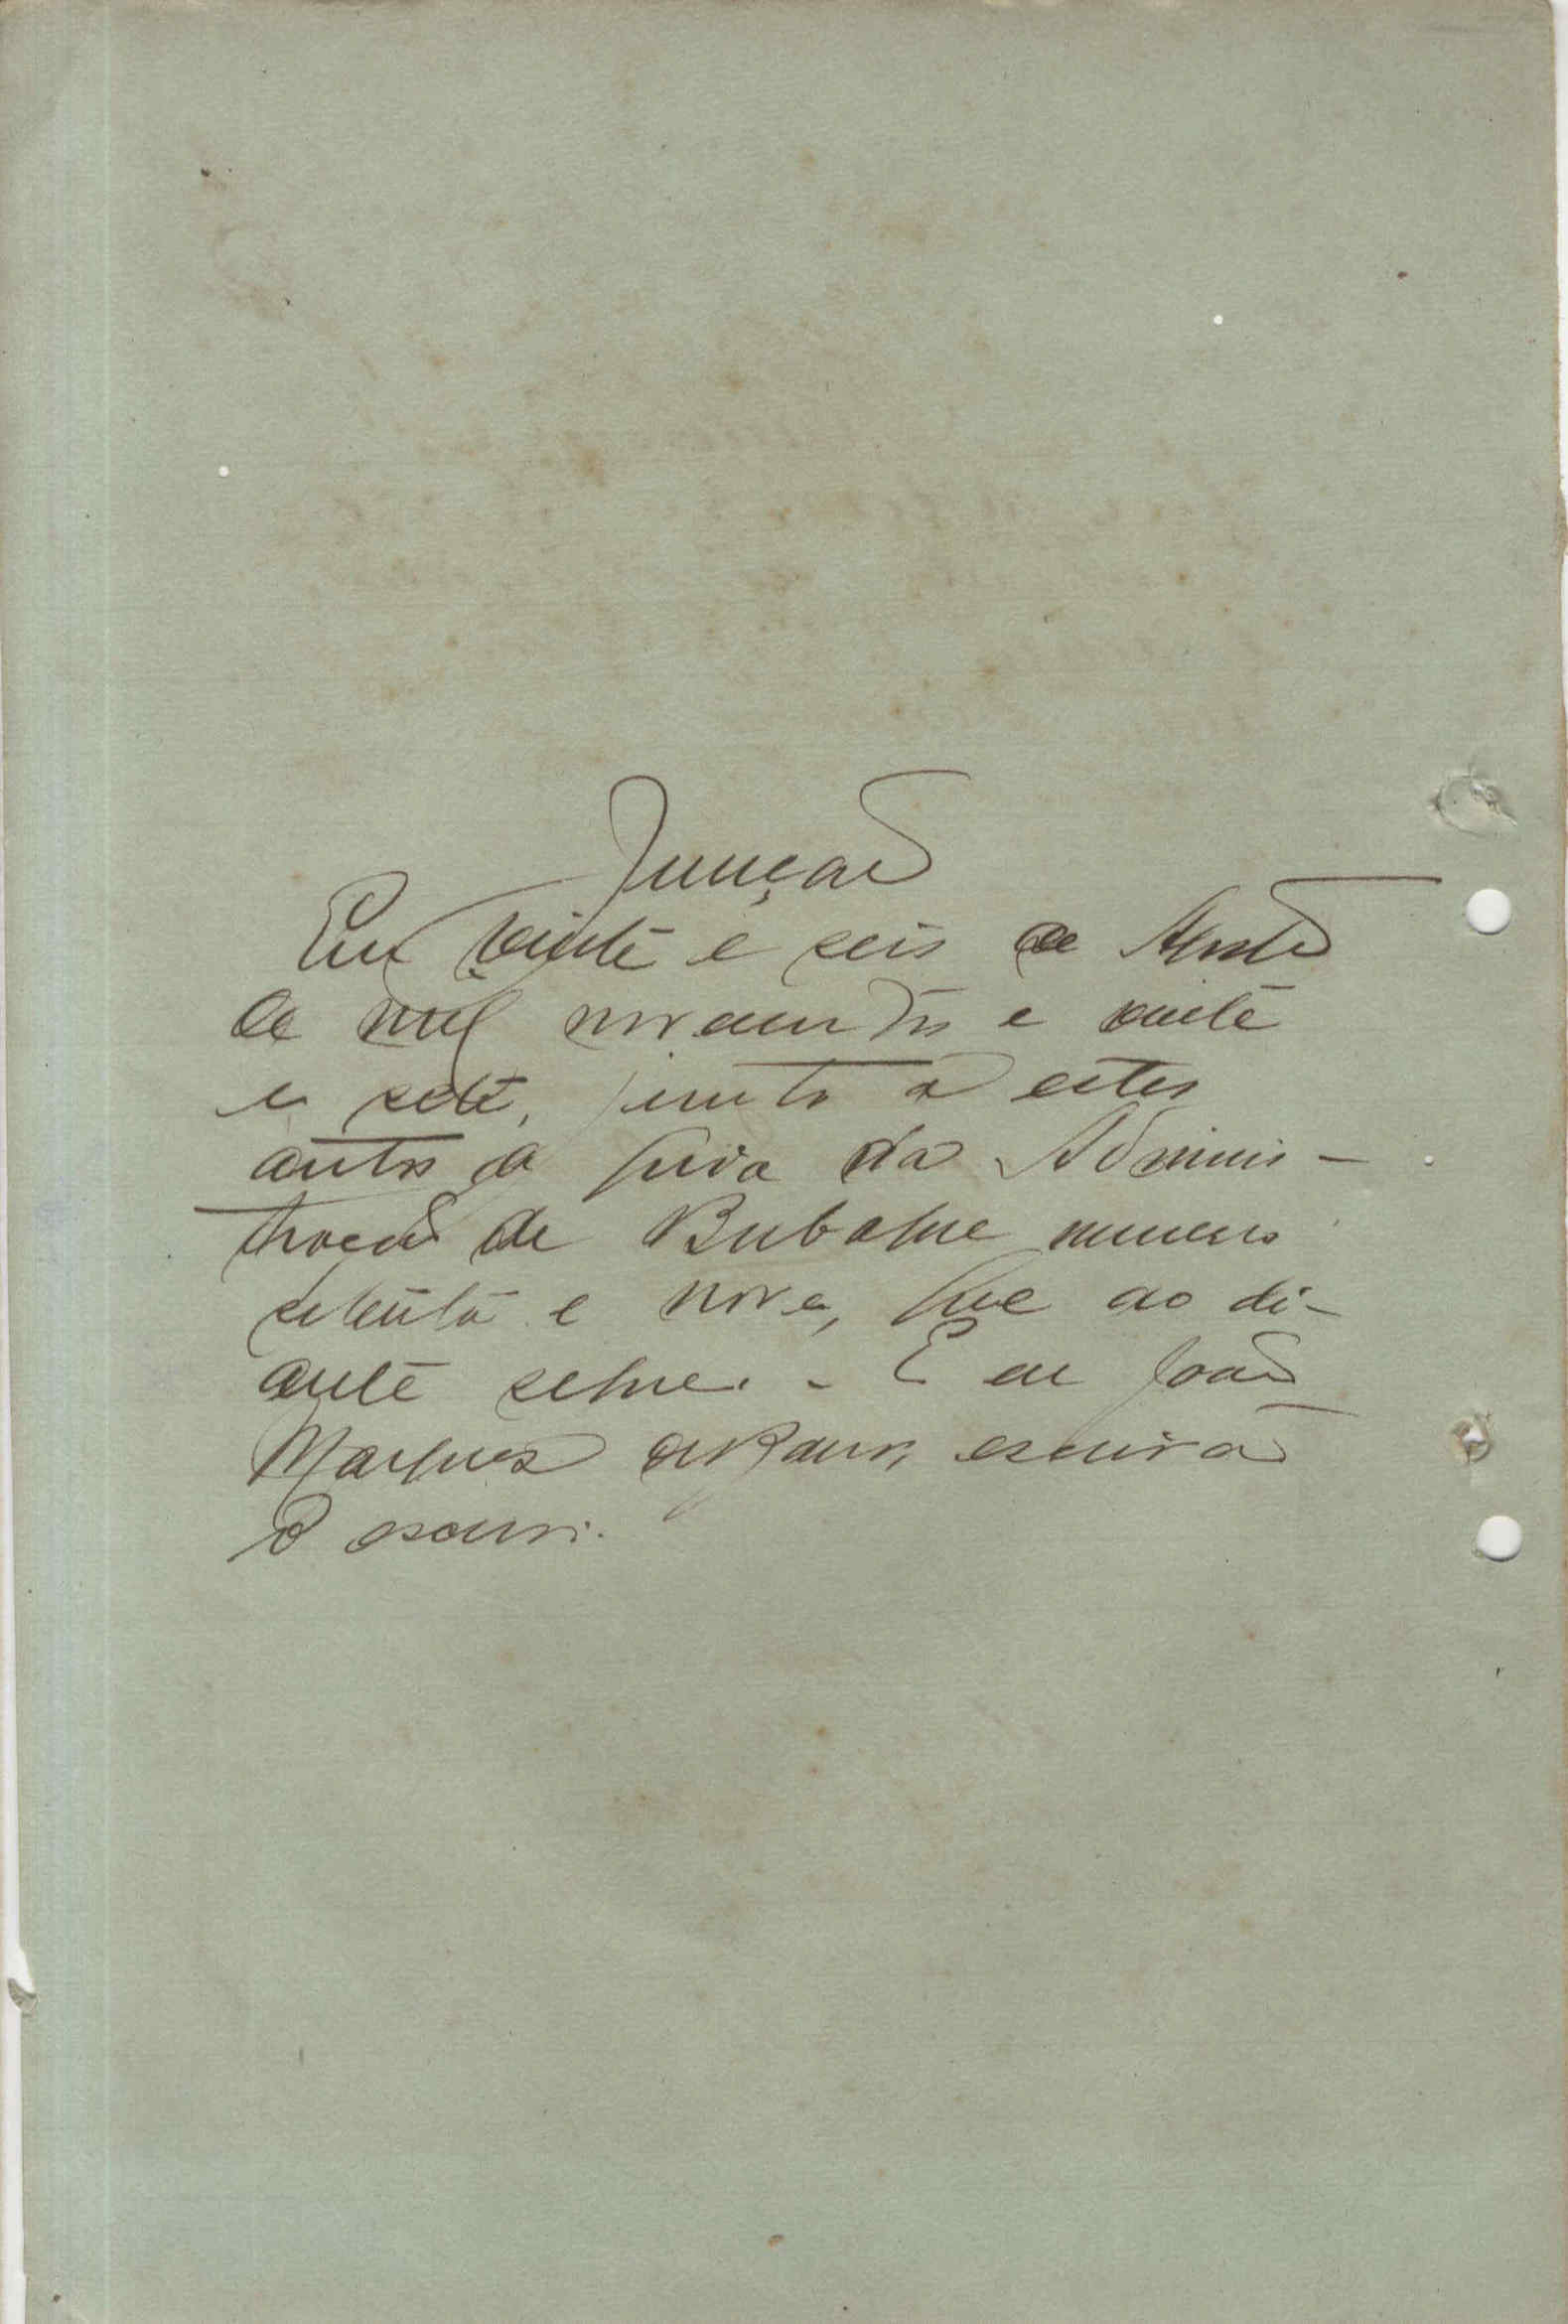 Junção
Em vinte e seis de Agosto
de mil novecentos e vinte
e sete, junto a estes
autos a guia da Adminis-
tração de Bubaque numero
setenta e nove, que ao di-
ante segue. - E eu João
Marques de Barros, escrivão
o escrevi.